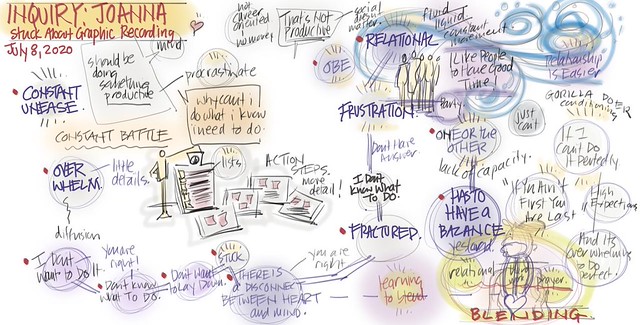 INQUIRY: JOANNA
Stuck About Graphic Recording
July 8, 2020
should be
doing
something
productive
mind
procrastinate
CONSTANT
UNEASE.
why can't i
do what i know
i need to do.
CONSTANT BATTLE
OVER
WHELM.
little
details.
lists
ACTION
STEPS.
more
detail!
diffusion
I Don't
Want to Do It.
You are
right!
Don't know
What To Do.
Don't Want
to Lay Down.
Stuck
THERE IS
a DISCONNECT
BETWEEN HEART
and MIND.
You are
right
not
career
oriented
no money
That's Not
Productive
social
doesn't
matter.
OBE
RELATIONAL
fluid
liquid
constant
movement
I Like People
to Have Good
Time!
Party
Relationship
is Easier
FRUSTRATION
Don't Have
Answer
I Don't
Know What
To Do.
FRACTURED.
learning
to blend
ONE OR THE
OTHER
lack of capacity.
HAS TO
HAVE a
BALANCE
relational
GORILLA DOER
conditioning
just
can't
If I
Can't Do
It Perfectly
"If You Ain't
First You
Are Last
High
Expectations
And It's
overwhelming
to Do
perfect.
prayer.
BLENDING